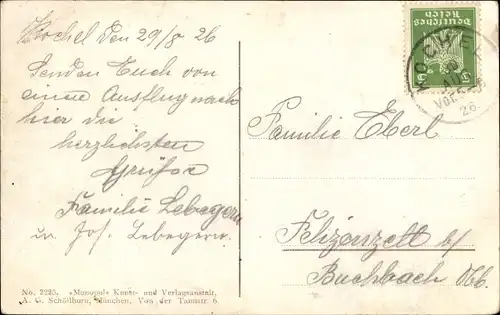 Kochel den 29/8 26
Senden Euch von
einem Ausflug nach
hier die
herzlichsten
Grüße
Familie Lebegern
u. Jos. Lebegern.
No. 2225. «Monopol» Kunst- und Verlagsanstalt,
A. G. Schöllhorn, München, Von der Tannstr. 6
Deutsches
Reich
KOCHEL
26
Familie Eberl
Felizenzell b/
Buchbach Obb.